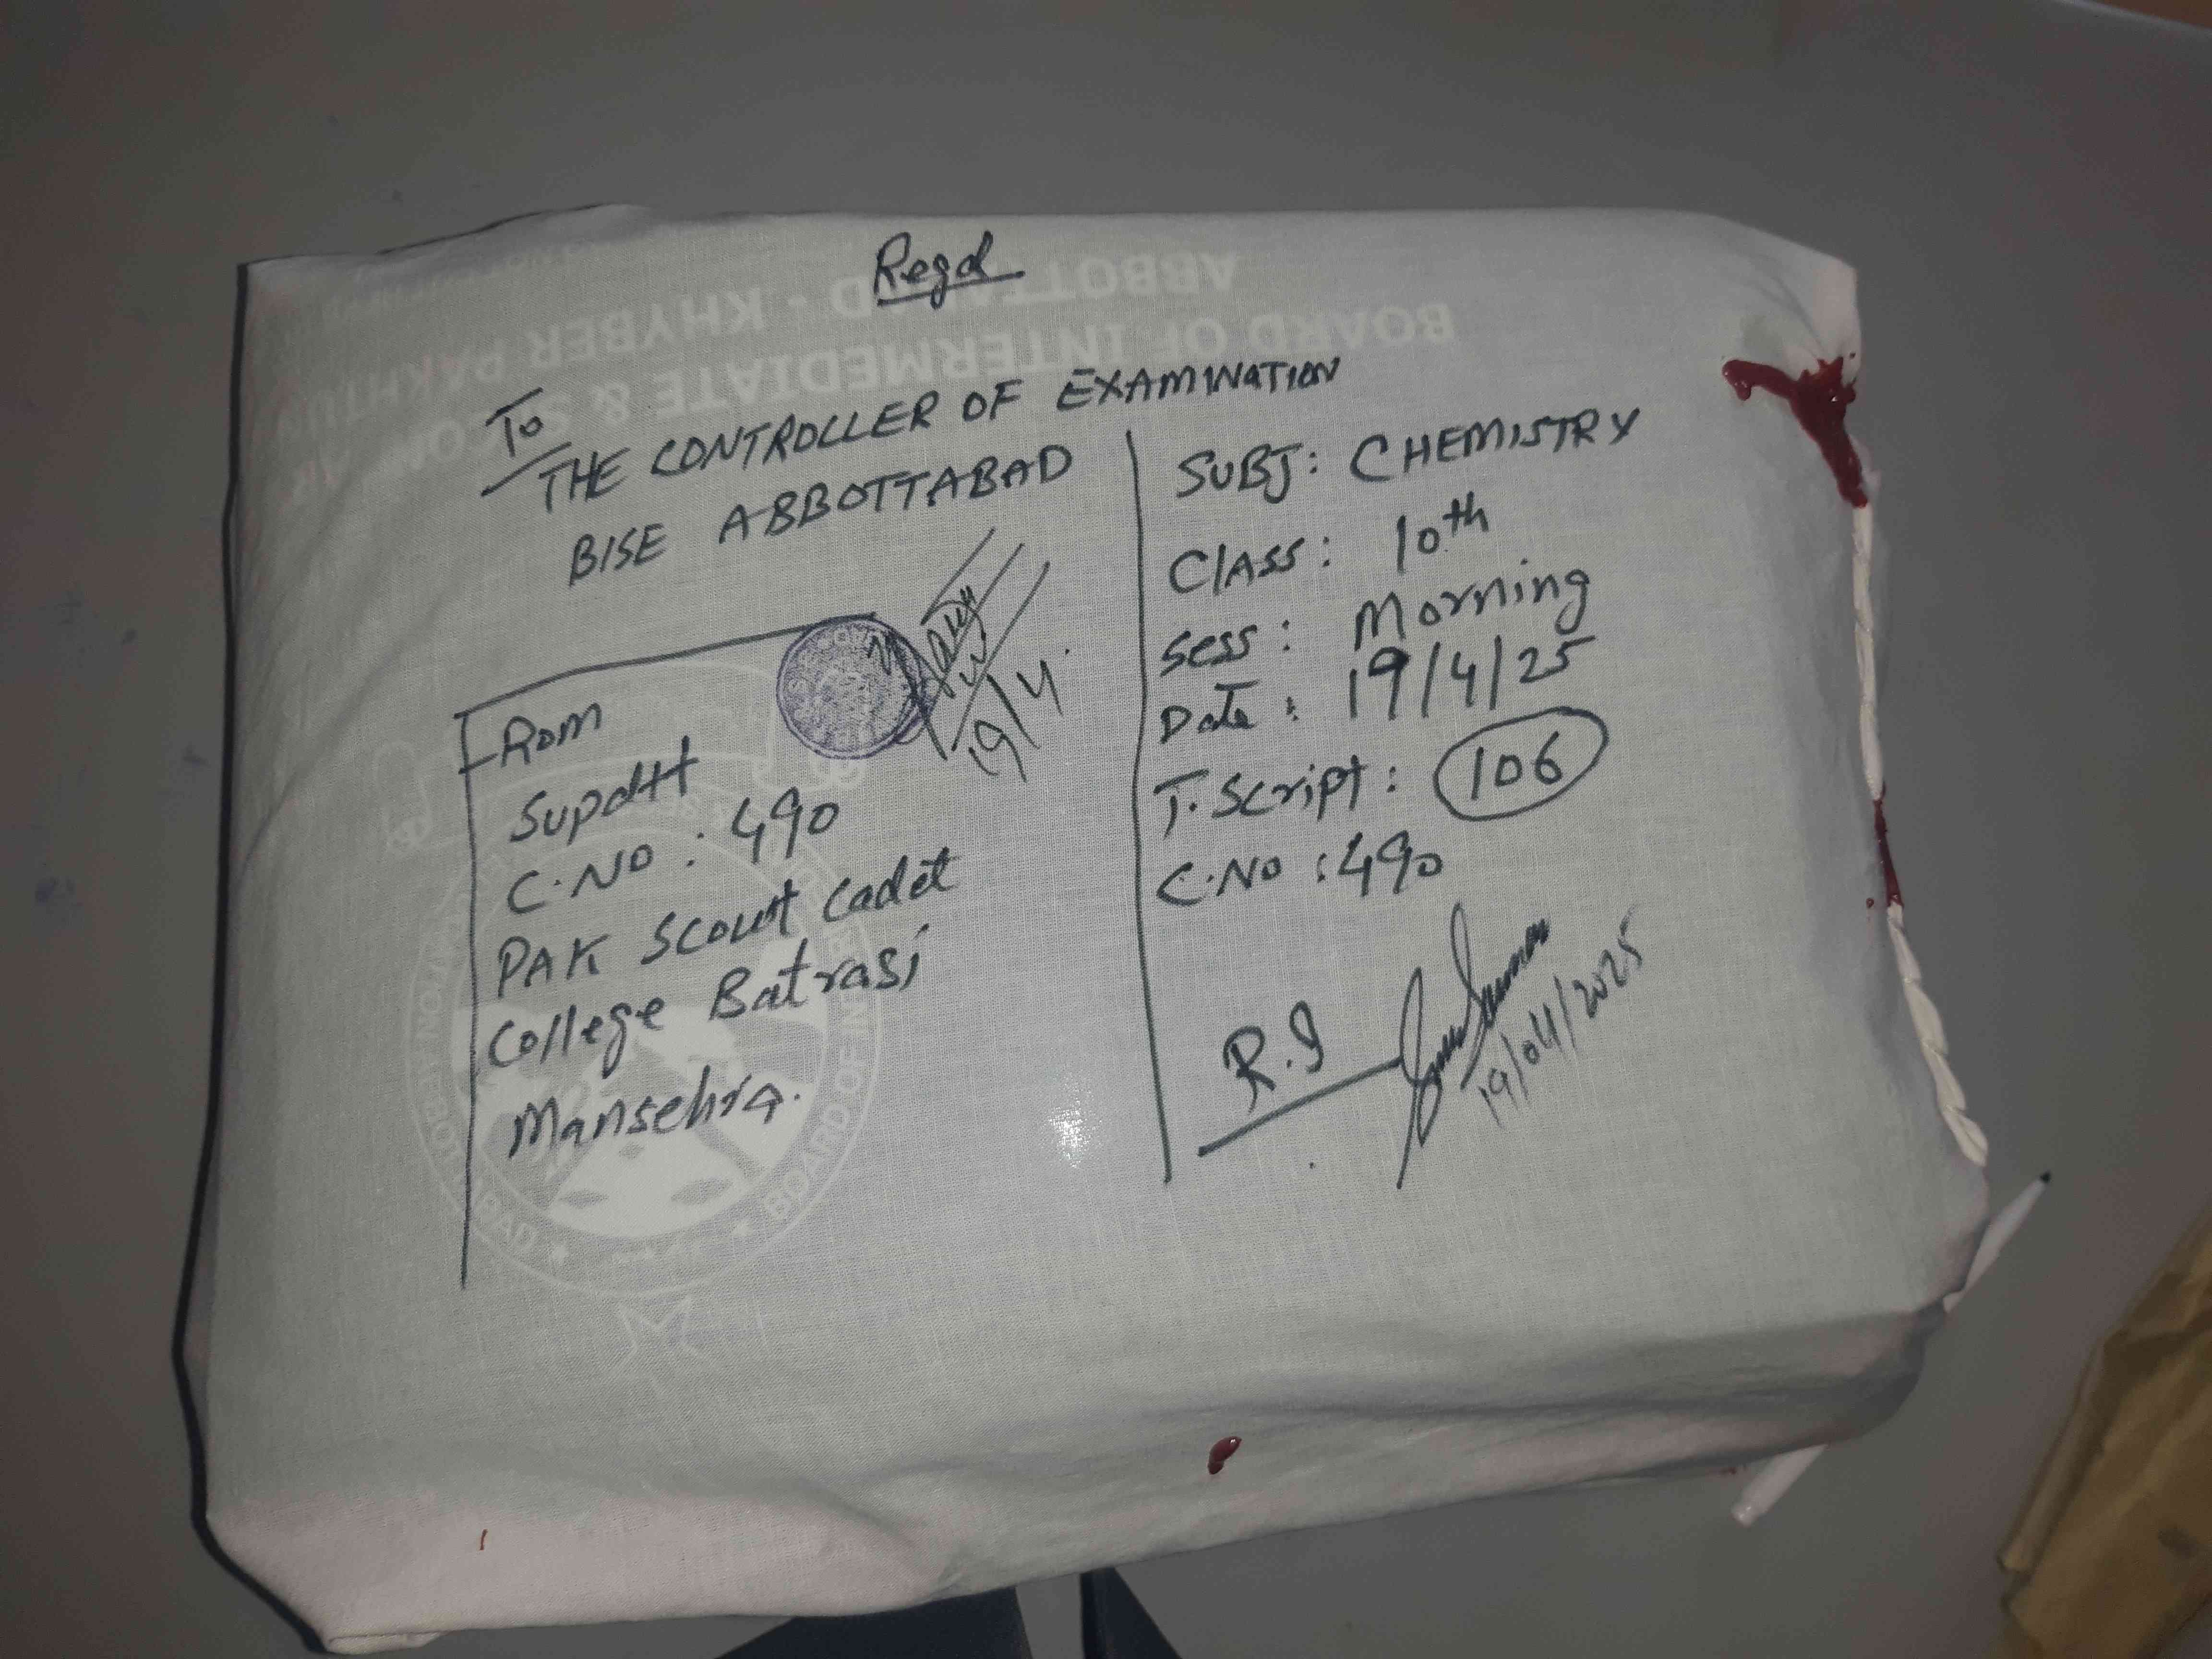 Regd
ABBOTTABAD - KHYBER PAKHTUN
BOARD OF INTERMEDIATE &
To
THE CONTROLLER OF EXAMINATION
BISE ABBOTTABAD
From
Supdtt
C.NO : 490
PAK Scout Cadet
College Batrasi
Mansehra.
19/4
SUBJ: CHEMISTRY
Class: 10th
Sess: Morning
Date: 19/4/25
T.Script: 106
C.NO : 490
R.I
19/04/2025
BOARD OF